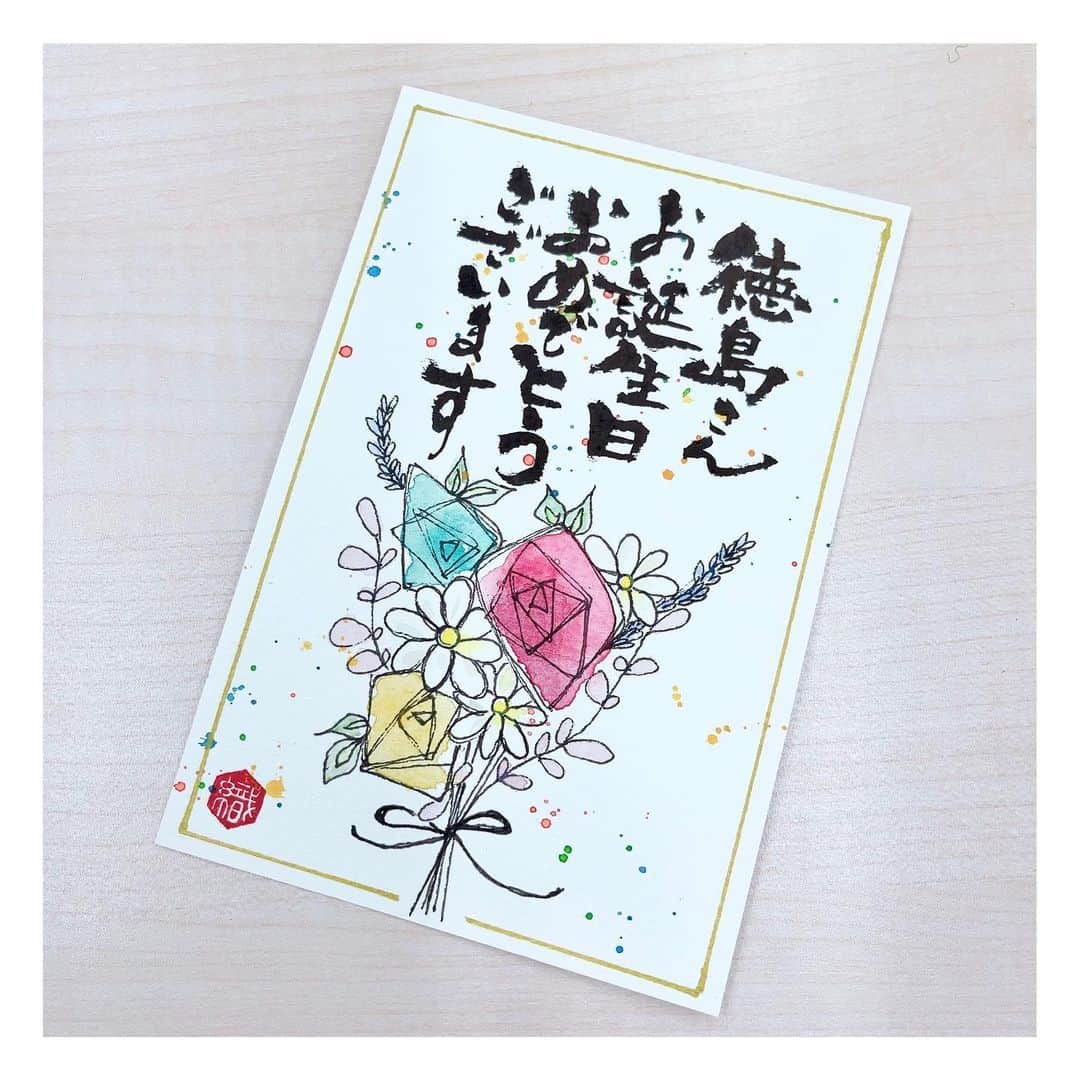 徳島さん
お誕生日
おめでとう
ございます
織